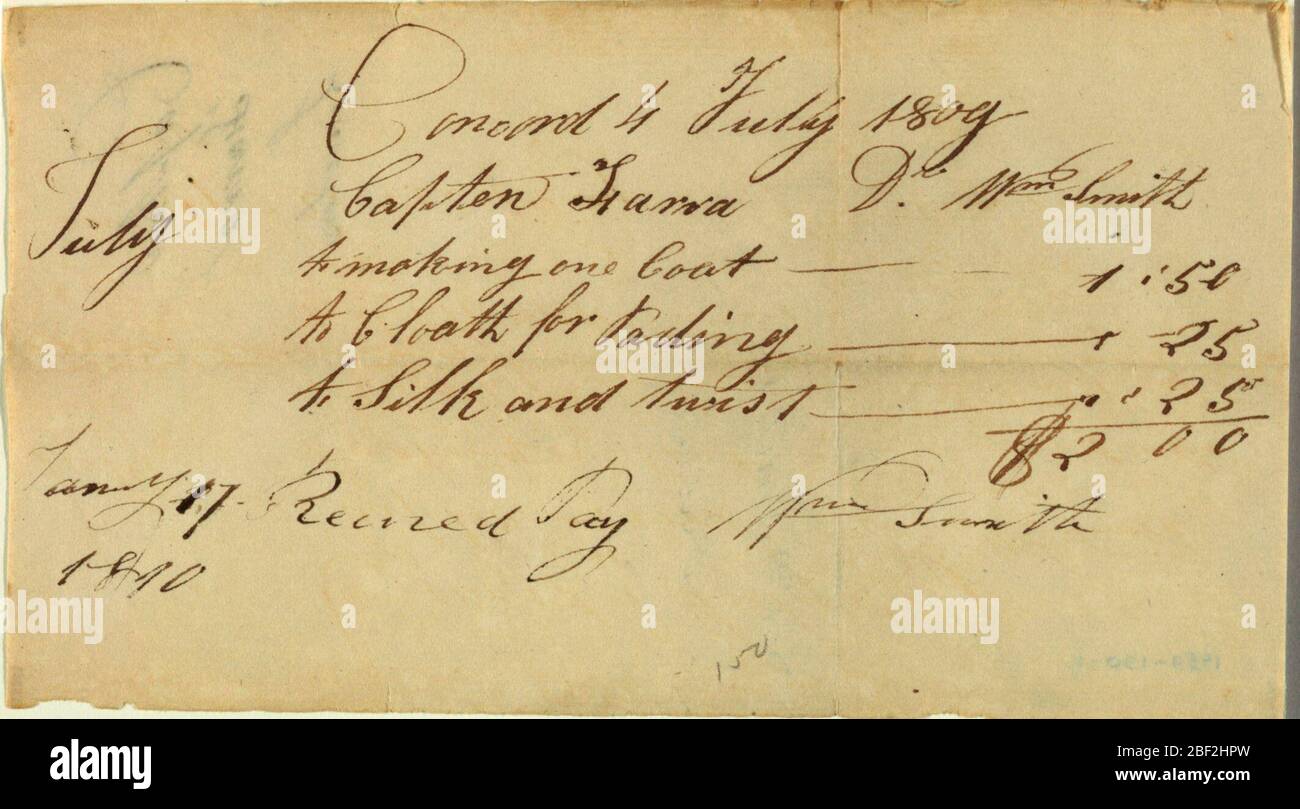 Concord 4 July 1809
Capten Farra Dr. Wm Smith
July
to making one Coat 1:50
to Cloath for Pading 25
to Silk and twist 25
$2 00
Janu'y 17 Receved Pay Wm Smith
1810
150
alamy
Image ID: 2BF2HPW
www.alamy.com